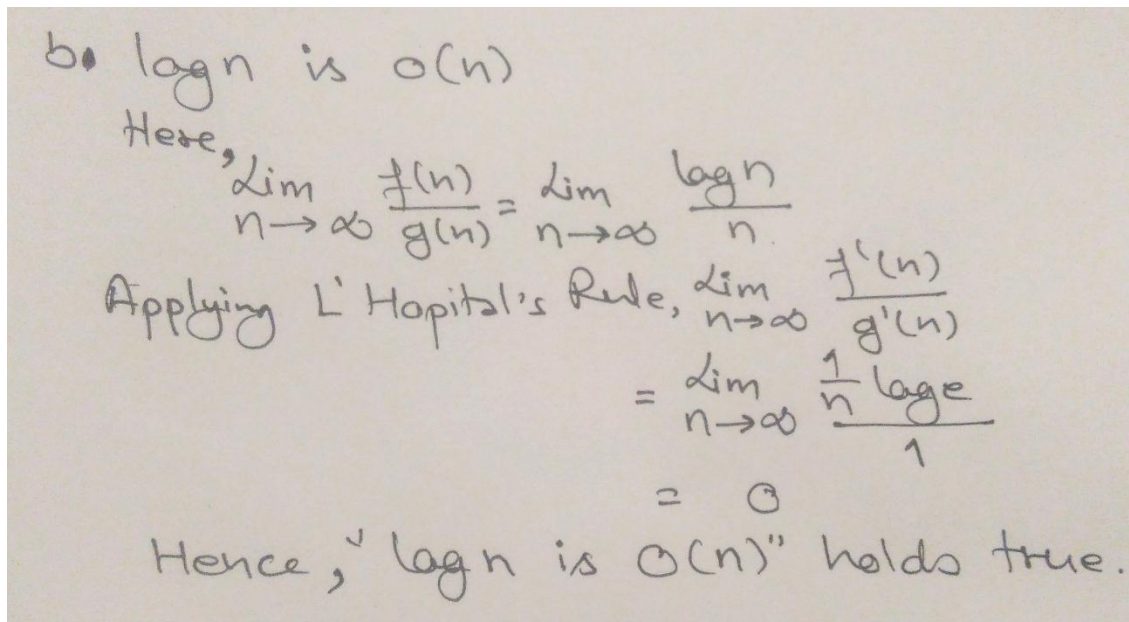 b. log n is o(n)
Here,
Lim n→∞ f(n)/g(n) = Lim n→∞ log n / n.
Applying L' Hopital's Rule, Lim n→∞ f'(n)/g'(n)
= Lim n→∞ (1/n log e)/1
= 0
Hence, "log n is O(n)" holds true.